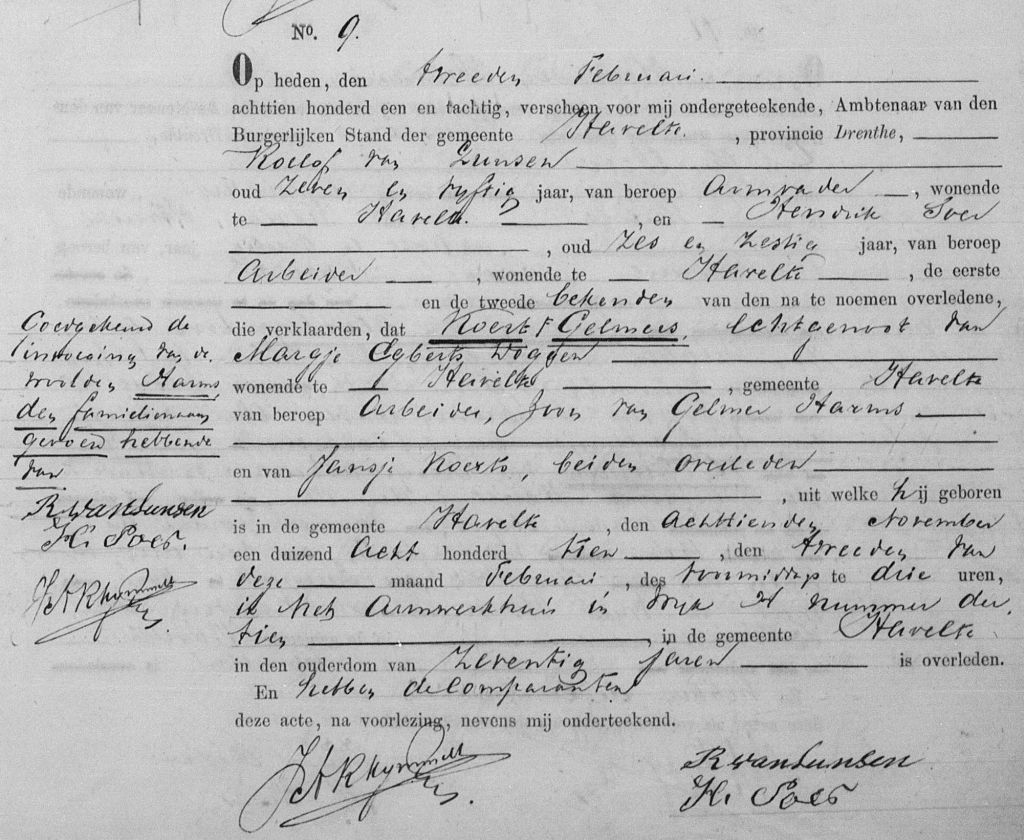 No. 9.
Op heden, den tweeden Februari
achttien honderd een en tachtig, verscheen voor mij ondergeteekende, Ambtenaar van den
Burgerlijken Stand der gemeente Havelte, provincie Drenthe,
Roelof van Lunsen
oud Zeven en vyftig jaar, van beroep Armvader, wonende
te Havelte, en Hendrik Soer
, oud Zes en Zestig jaar, van beroep
Arbeider, wonende te Havelte, de eerste
en de tweede bekenden van den na te noemen overledene,
die verklaarden, dat Koert Gelmers, Echtgenoot van
Margje Egberts Doggen
wonende te Havelte, gemeente Havelte
van beroep Arbeider, Zoon van Gelmer Harms
en van Jansje Koerts, beiden overleden
, uit welke hij geboren
is in de gemeente Havelte, den Achttienden November
een duizend Acht honderd tien, den tweeden van
deze maand Februari, des voormiddags te drie uren,
in het Armwerkhuis in Wyk H nummer der
tien, in de gemeente Havelte
in den ouderdom van Zeventig jaren is overleden.
En hebben de Comparanten
deze acte, na voorlezing, nevens mij onderteekend.
R van Lunsen
H. Soer
Goedgekeurd de
invoeging van de
woorden Harms
den familienaam
gevoerd hebbende
van
R van Lunsen
H. Soer.